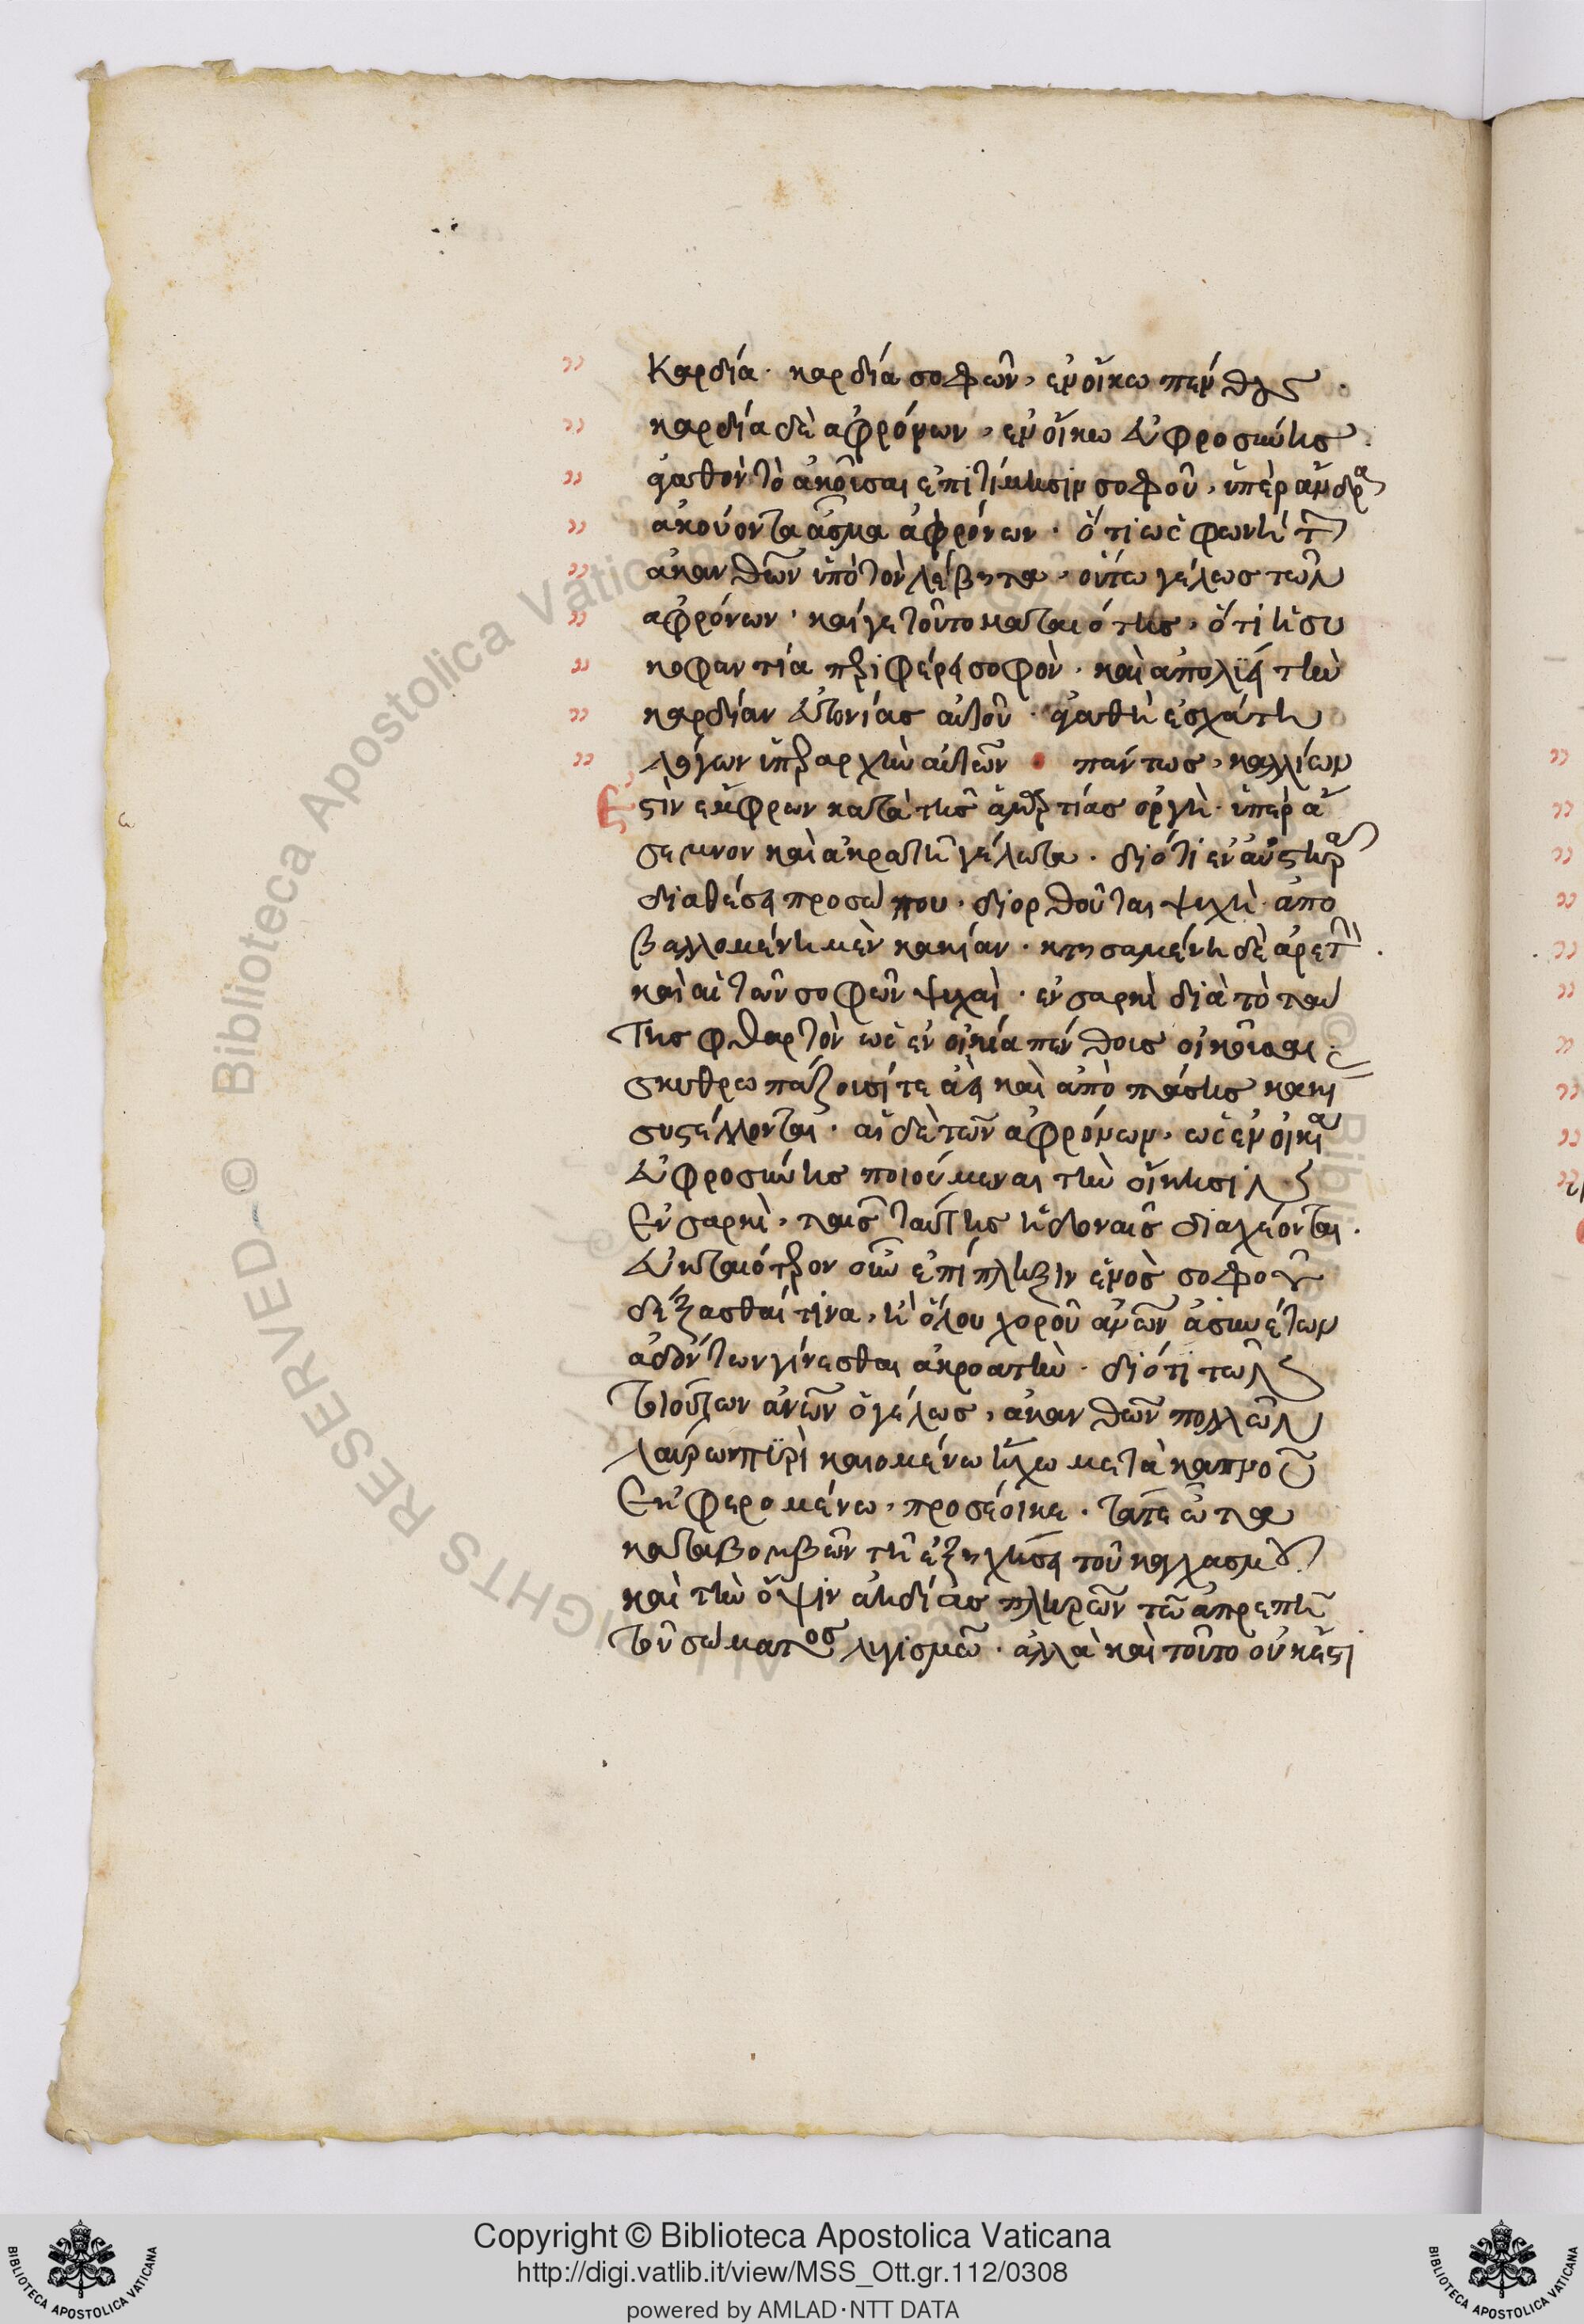 καρδία· καρδία σοφῶν, ἐν οἴκω πένθους·
καρδία δὲ ἀφρόνων, ἐν οἴκω εὐφροσύνης·
ἀγαθὸν τὸ ἀκοῦσαι ἐπιτίμησιν σοφοῦ, ὑπὲρ ἄνδρα
ἀκούοντα ἆσμα ἀφρόνων· ὅτι ὡς φωνὴ τῶν
ἀκανθῶν ὑπὸ τὸν λέβητα, οὕτω γέλως τῶν
ἀφρόνων· καί γε τοῦτο ματαιότης, ὅτι ἡ συ
κοφαντία περιφέρει σοφὸν, καὶ ἀπολλύει τὴν
καρδίαν εὐτονίας αὐτοῦ· ἀγαθὴ ἐσχάτη
λόγων ὑπὲρ ἀρχὴν αὐτῶν · πάντως, καλλίων
ἐστὶν ἔμφρων κατὰ τῆς ἁμαρτίας ὀργὴ, ὑπὲρ ἄ
σεμνον καὶ ἀκρατῆ γέλωτα· διότι ἐν αὐστηρᾶ
διαθέσει προσώπου, διορθοῦται ψυχὴ, ἀπο
βαλλομένη μὲν κακίαν, κτησαμένη δὲ ἀρετήν·
καὶ αἱ τῶν σοφῶν ψυχαὶ, ἐν σαρκὶ διὰ τὸ ταύ
της φθαρτὸν ὡς ἐν οἰκία πένθους οἰκοῦσαι·
σκυθρωπάζουσί τε ἀεὶ καὶ ἀπὸ πάσης κακίας
συστέλλονται· αἱ δὲ τῶν ἀφρόνων, ὡς ἐν οἰκία
εὐφροσύνης ποιούμεναι τὴν οἴκησιν
ἐν σαρκὶ, ταῖς ταύτης ἡδοναῖς διαχέονται·
εὐκταιότερον οὖν ἐπίπληξιν ἑνὸς σοφοῦ
δέξασθαί τινα, ἢ ὅλου χοροῦ ἀνῶν ἀσυνέτων
ἀδόντων γίνεσθαι ἀκροατὴν· διότι τῶν
τοιούτων ἀνῶν ὁ γέλως, ἀκανθῶν πολλῶν
λαύρω πυρὶ καιομένω ἤχω μετὰ καπνοῦ
ἐκφερομένω, προσέοικε· τά τε ὦτα
καταβομβῶν τῆ ἐξηχήσει τοῦ καχλασμοῦ
καὶ τὴν ὄψιν ἀηδίας πληρῶν τῶ ἀπρεπεῖ
τοῦ σώματος λυγισμῶ· ἀλλὰ καὶ τοῦτο οὐκ ἔστι
Copyright © Biblioteca Apostolica Vaticana
http://digi.vatlib.it/view/MSS_Ott.gr.112/0308
powered by AMLAD·NTT DATA